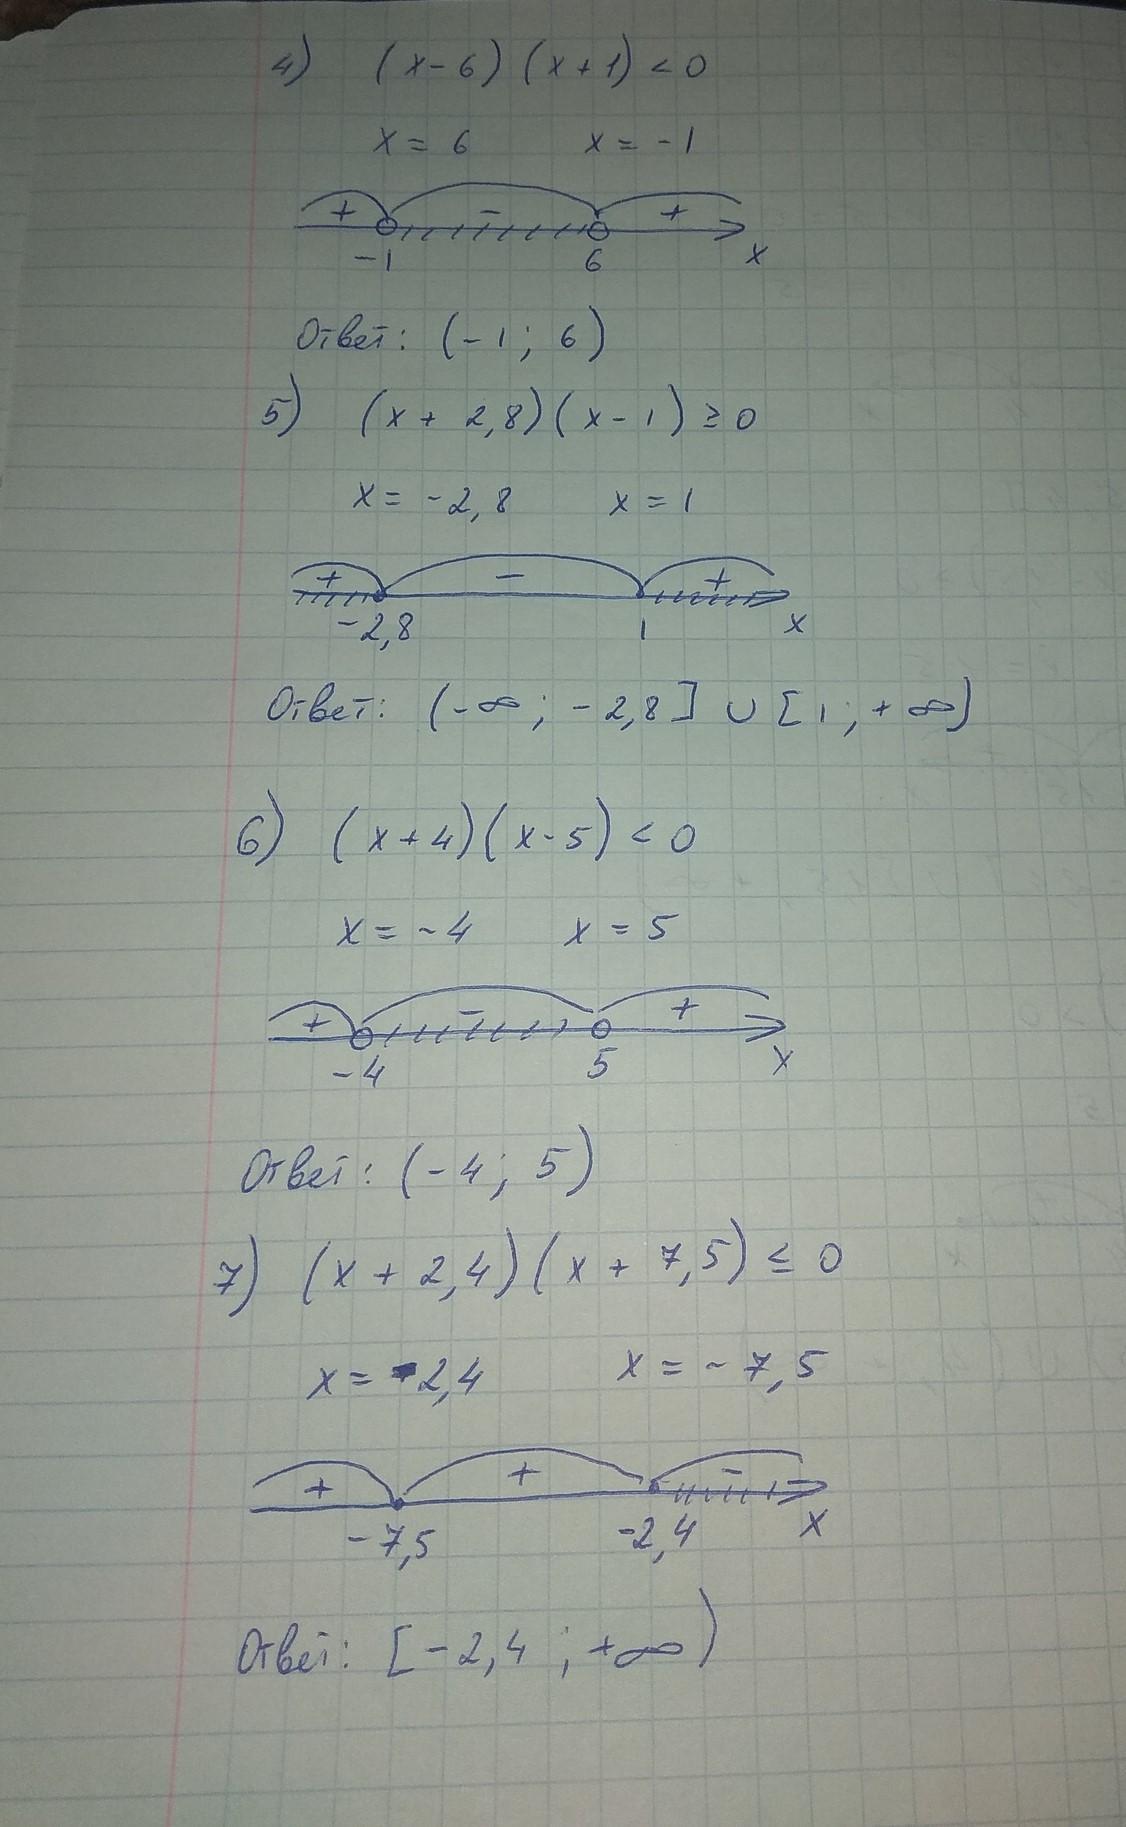 4) (x-6) (x+1) < 0
x = 6 x = -1
+ - +
-1 6 x
Ответ: (-1; 6)
5) (x + 2,8)(x-1) ≥ 0
x = -2,8 x = 1
+ - +
-2,8 1 x
Ответ: (-∞; -2,8] ∪ [1; +∞)
6) (x+4)(x-5) < 0
x = -4 x = 5
+ - +
-4 5 x
Ответ: (-4; 5)
7) (x + 2,4)(x + 7,5) ≤ 0
x = -2,4 x = -7,5
+ + -
-7,5 -2,4 x
Ответ: [-2,4; +∞)